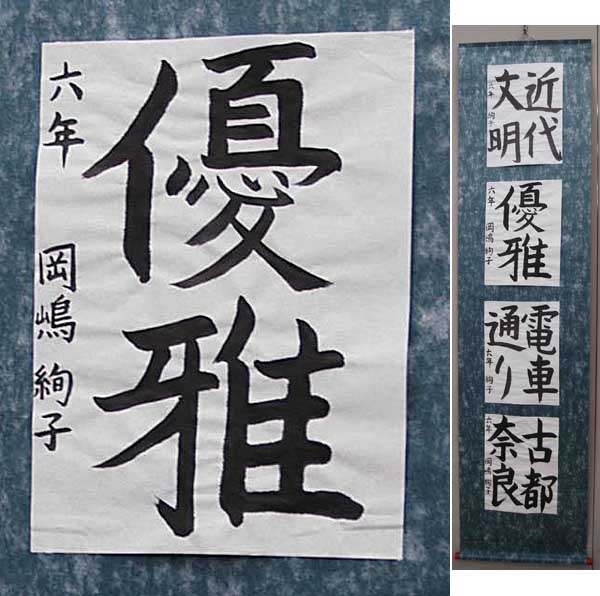 優雅
六年 岡嶋絢子
近代
文明
六年 絢子
優雅
六年 岡嶋絢子
電車
通り
六年 絢子
古都
奈良
六年 岡嶋絢子